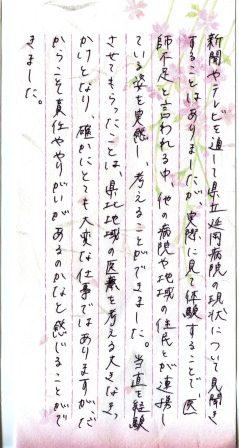 新聞やテレビを通して県立延岡病院の現状について見聞き
することはありましたが、実際に見て体験することで、医
師不足と言われる中、他の病院や地域の住民とが連携し
ている姿を実感し、考えることができました。当直を経験
させてもらったことは、県北地域の医療を考える大きなきっ
かけとなり、確かにとても大変な仕事ではありますがだ
からこそ責任ややりがいがあるのかなと感じることがで
きました。